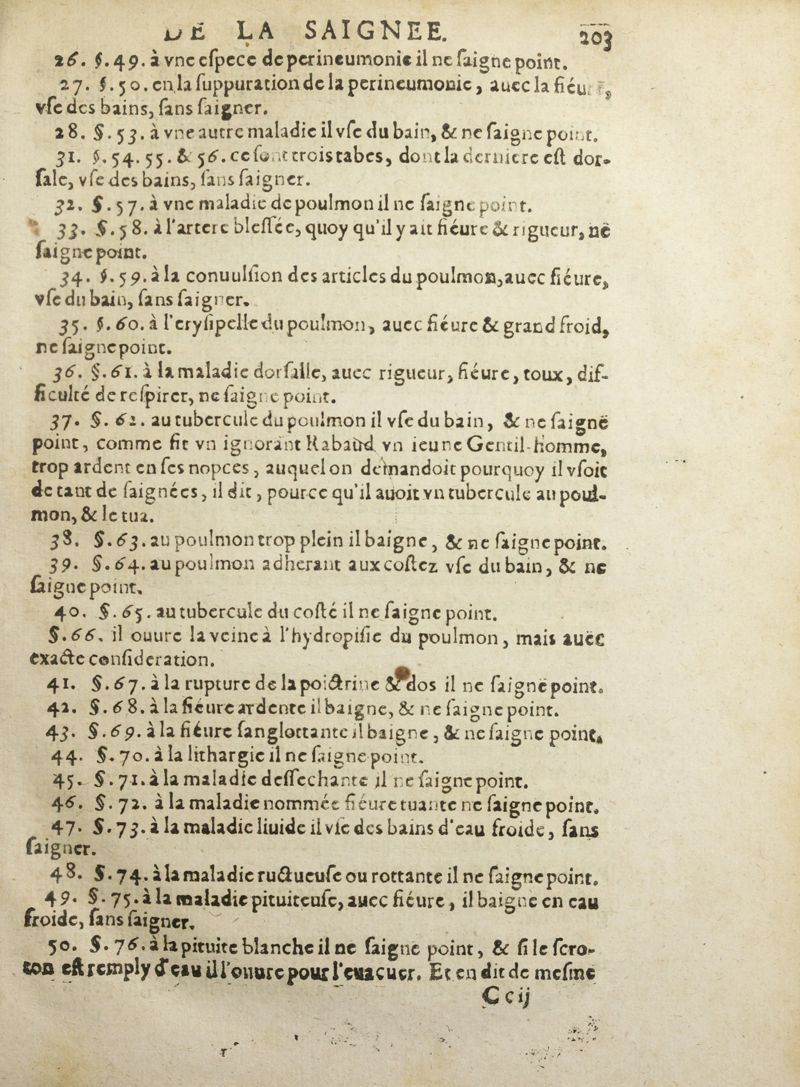 DE LA SAIGNEE. 203
26. §. 49. à vne eſpece de perineumonie il ne ſaigne point.
27. §. 50. en la ſuppuration de la perineumonie, auec la fiéu
vſe des bains, ſans ſaigner.
28. §. 53. à vne autre maladie il vſe du bain, & ne ſaigne point.
31. §. 54. 55. & 56. ce ſont trois tabes, dont la derniere eſt dor-
ſale, vſe des bains, ſans ſaigner.
32. §. 57. à vne maladie de poulmon il ne ſaigne point.
33. §. 58. à l'artere bleſſée, quoy qu'il y ait fiéure & rigueur, ne
ſaigne point.
34. §. 59. à la conuulſion des articles du poulmon, auec fiéure,
vſe du bain, ſans ſaigner.
35. §. 60. à l'eryſipelle du poulmon, auec fiéure & grand froid,
ne ſaigne point.
36. §. 61. à la maladie dorſalle, auec rigueur, fiéure, toux, dif-
ficulté de reſpirer, ne ſaigne point.
37. §. 62. au tubercule du poulmon il vſe du bain, & ne ſaigne
point, comme fit vn ignorant Rabaud vn ieune Gentil-homme,
trop ardent en ſes nopces, auquel on demandoit pourquoy il vſoit
de tant de ſaignées, il dit, pource qu'il auoit vn tubercule au poul-
mon, & le tua.
38. §. 63. au poulmon trop plein il baigne, & ne ſaigne point.
39. §. 64. au poulmon adherant aux coſtez vſe du bain, & ne
ſaigne point.
40. §. 65. au tubercule du coſté il ne ſaigne point.
§. 66. il ouure la veine à l'hydropiſie du poulmon, mais auec
exacte conſideration.
41. §. 67. à la rupture de la poictrine & dos il ne ſaigne point.
42. §. 68. à la fiéure ardente il baigne, & ne ſaigne point.
43. §. 69. à la fiéure ſanglottante il baigne, & ne ſaigne point.
44. §. 70. à la lithargie il ne ſaigne point.
45. §. 71. à la maladie deſſechante il ne ſaigne point.
46. §. 72. à la maladie nommée fiéure tuante ne ſaigne point.
47. §. 73. à la maladie liuide il vſe des bains d'eau froide, ſans
ſaigner.
48. §. 74. à la maladie ructueuſe ou rottante il ne ſaigne point.
49. §. 75. à la maladie pituiteuſe, auec fiéure, il baigne en eau
froide, ſans ſaigner.
50. §. 76. à la pituite blanche il ne ſaigne point, & ſi le ſcro-
ton eſt remply d'eau il l'ouure pour l'euacuer. Et en dit de meſme
C c ij